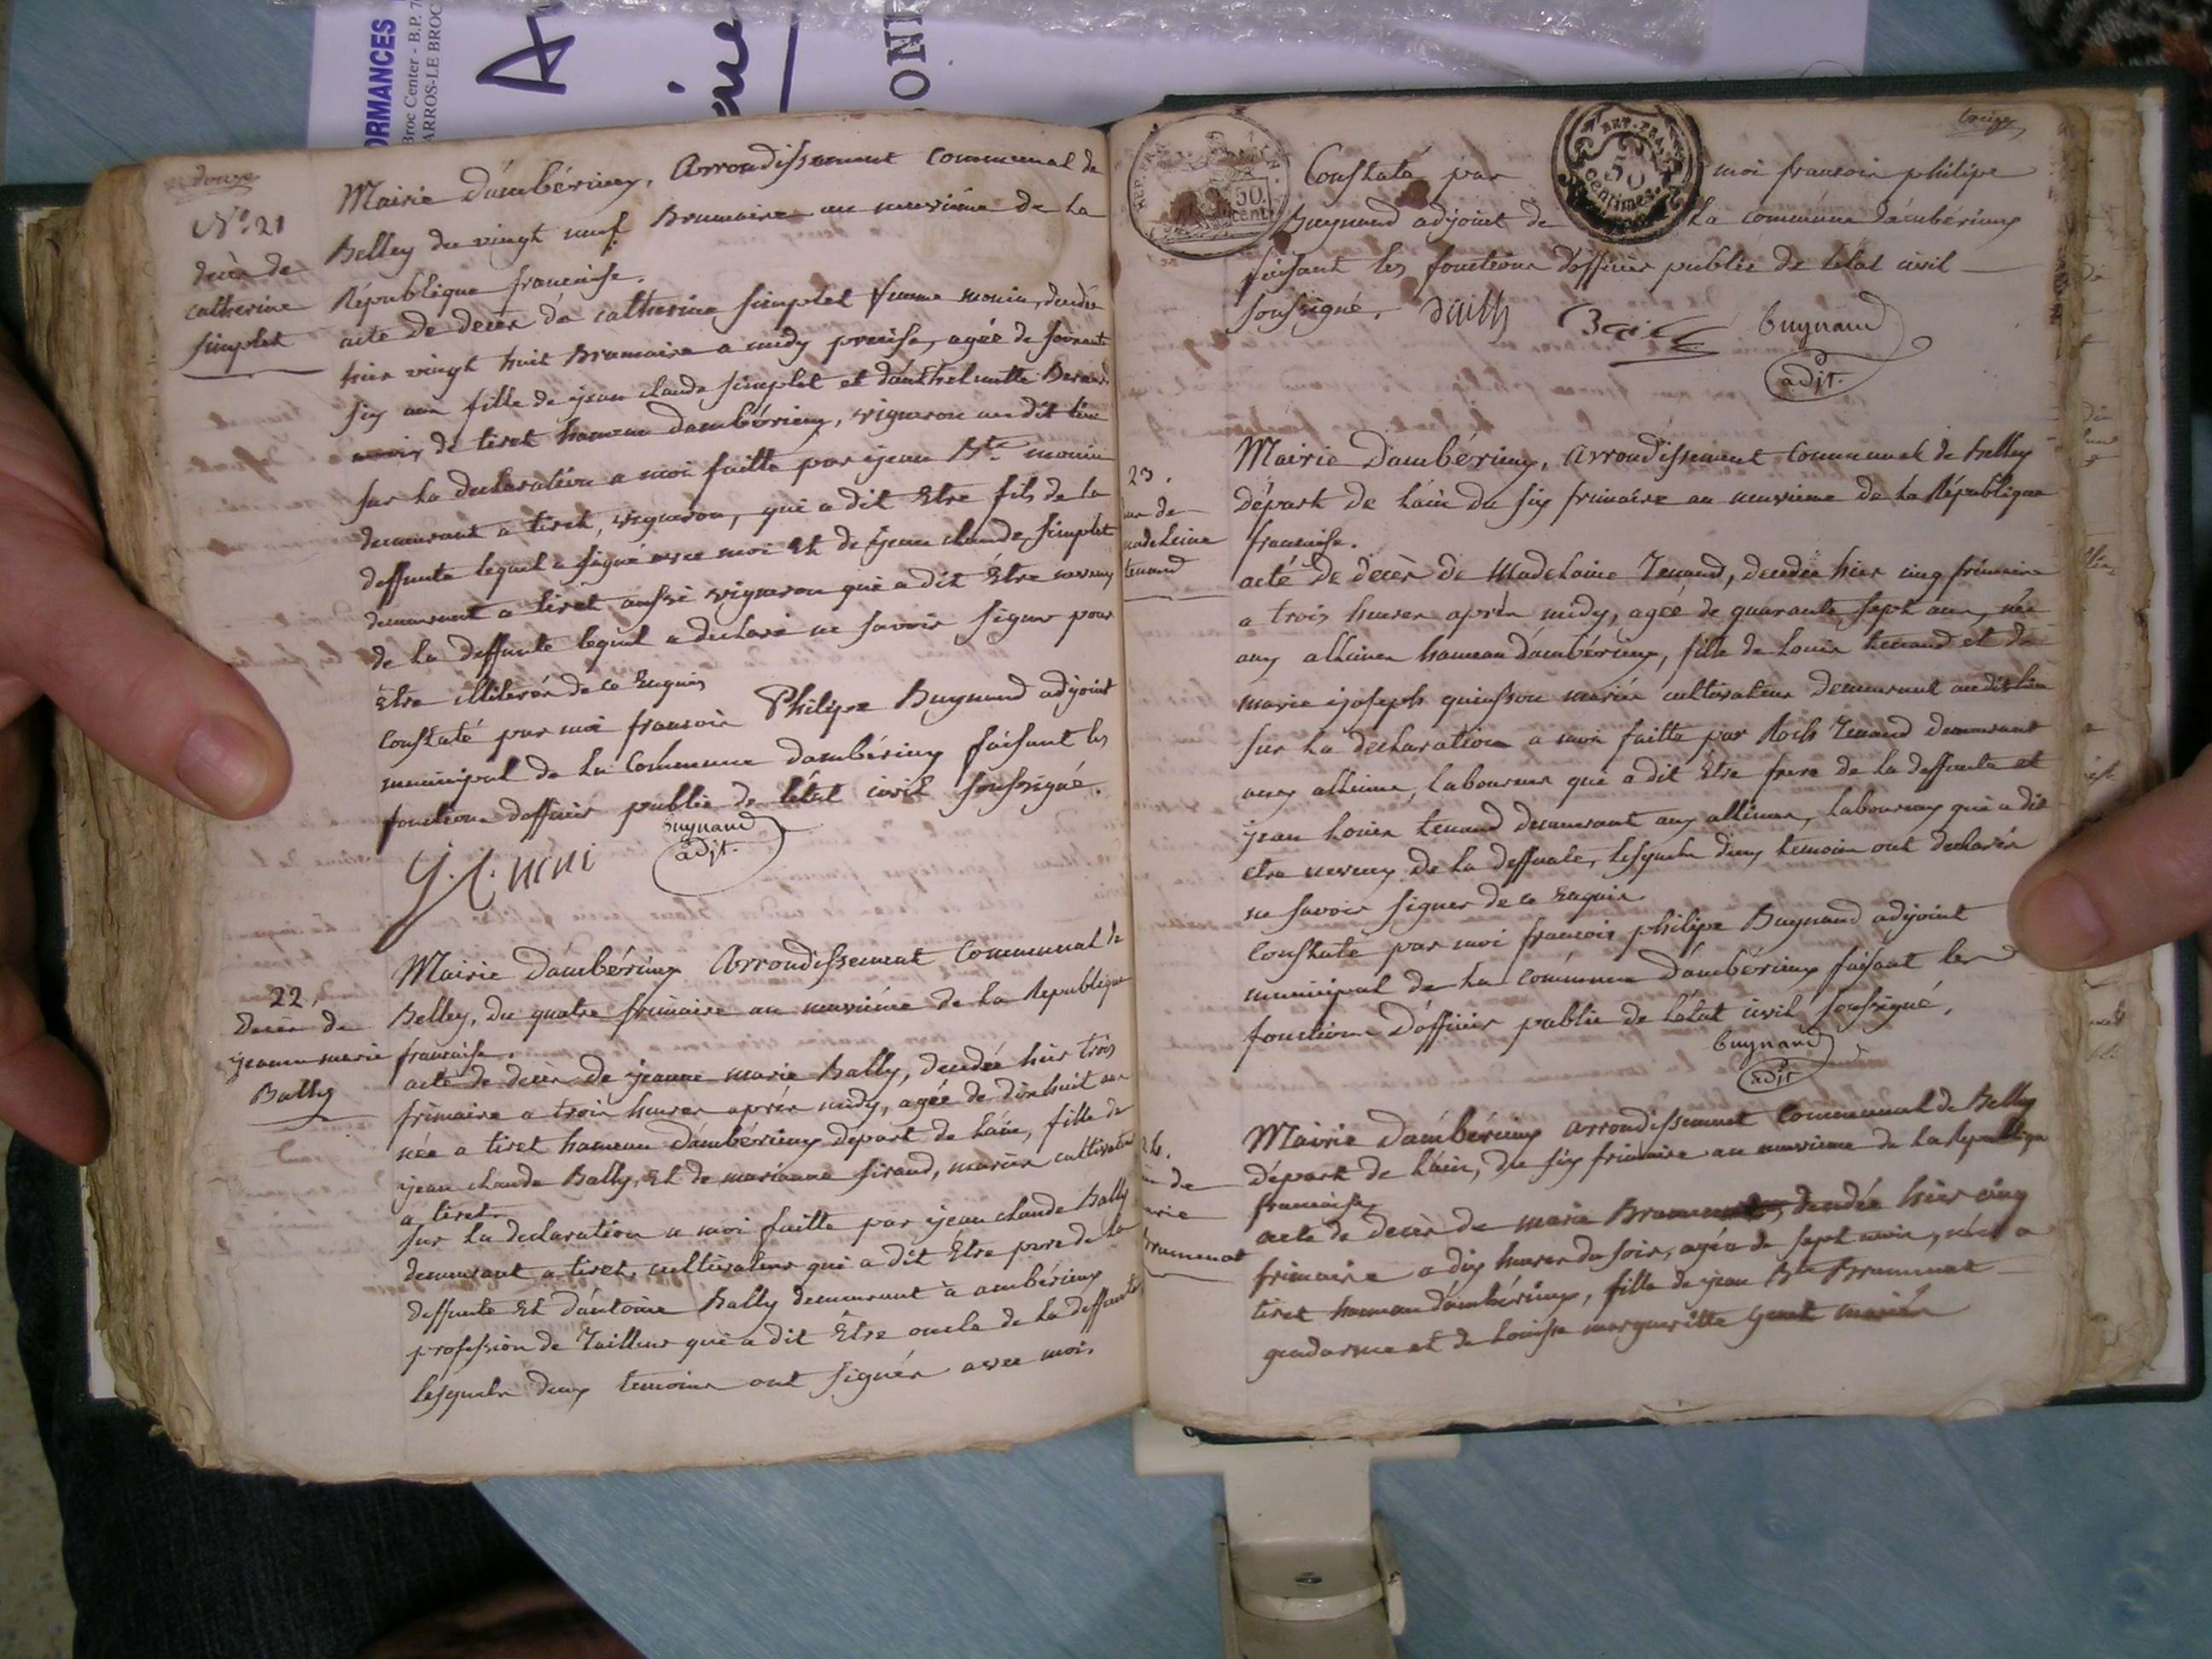 ORMANCES
Broc Center - B.P. 7
ARROS-LE BROC
ONI
douze
N.° 21
decès de
catherine
simplet
Mairie d'ambérieux, Arrondissement Communal de
Belley du vingt neuf Brumaire an neuvième de la
République francaise.
acte de decès de catherine simplet femme monin, decedée
hier vingt huit Brumaire a midy precise, agée de soixante
six ans fille de jean claude simplet et d'anthelmette
de tiret hameau d'ambérieux, vigneron au dit lieu
sur la declaration a moi faitte par jean Bte monin
demeurant a tiret, vigneron, qui a dit Etre fils de la
deffunte lequel a signé avec moi Et de jean claude simplet
demeurant a tiret aussi vigneron qui a dit Etre neveux
de la deffunte lequel a declaré ne savoir signer pour
Etre illiterés de ce Enquis
Constaté par moi francois Philipe Buynand adjoint
municipal de la Commune dambérieux faisant les
fonctions dofficier public de l'état civil soussigné.
buynand
adjt.
22.
Decès de
jeanne marie
Bally
Mairie d'ambérieux Arrondissement Communal de
Belley, du quatre frimaire an neuvième de la Republique
francaise.
acte de decès de jeanne marie Bally, decedée hier trois
frimaire a trois heures après midy, agée de dix huit ans
née a tiret hameau d'ambérieux depart de l'ain, fille de
jean claude Bally, Et de marianne sirand, mariés cultivateurs
a tiret.
sur la declaration a moi faitte par jean claude Bally
demeurant a tiret, cultivateur qui a dit Etre pere de la
deffunte Et d'antoine Bally demeurant à ambérieux
profession de Tailleur qui a dit Etre oncle de la deffunte
lesquels deux temoins ont signés avec moi.
treize
REP. FRA
50.
cent
REP. FRA
50
Centimes
Constaté par moi francois philipe
Buynand adjoint de la commune d'ambérieux
faisant les fonctions d'officier public de l'etat civil
soussigné. bailly Bailly buynand
adjt.
23.
de
madelaine
tenand
Mairie d'ambérieux, Arrondissement Communal de Belley
Départ de lain du six frimaire an neuvieme de la République
francaise.
acte de decès de Madelaine Tenand, decedée hier cinq frimaire
a trois heures après midy, agée de quarante sept ans, née
aux allimes hameau d'ambérieux, fille de louis tenand et de
marie joseph quinsson mariés cultivateurs demeurant audit lieu
sur la declaration a moi faitte par Roch Tenand demeurant
aux allimes, laboureur qui a dit Etre frere de la deffunte et
jean louis tenand demeurant aux allimes, laboureur qui a dit
etre neveux de la deffunte, lesquels deux temoins ont declarés
ne savoir signer de ce Enquis.
Constaté par moi francois philipe Buynand adjoint
municipal de la commune d'ambérieux faisant les
fonctions D'officier public de l'état civil soussigné,
buynand
adjt
24.
de
marie
brammat
Mairie d'ambérieux arrondissement Communal de Belley
départ de l'ain, du six frimaire an neuvieme de la Republique
francaise,
acte de decès de marie decedée hier cinq
frimaire a dix heures du soir, agée de sept mois, née a
tiret hameau d'ambérieux, fille de jean Bte Brammat
gendarme et de louise margueritte mariés